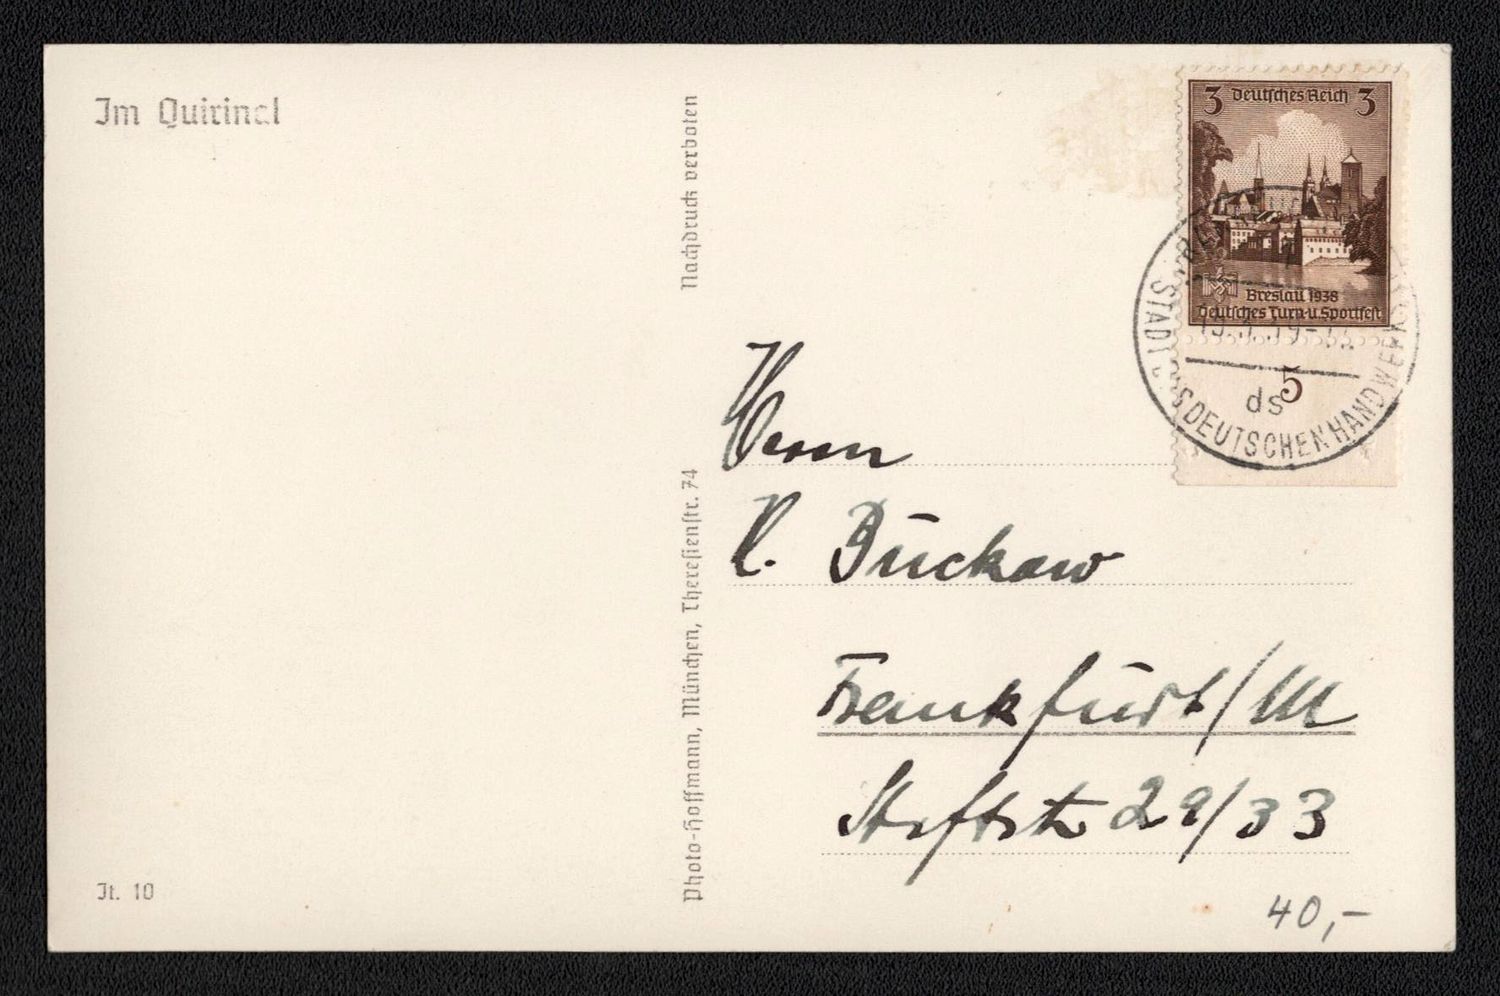 Im Quirinal
Nachdruck verboten
Photo-Hoffmann, München, Theresienstr. 74
It. 10
3 Deutsches Reich 3
Breslau 1938
Deutsches Turn- u. Sportfest
5
STADT DES DEUTSCHEN HANDWERKS
ds
Herrn
Bückaw
Frankfurt/M
Stiftstr 29/33
40,-